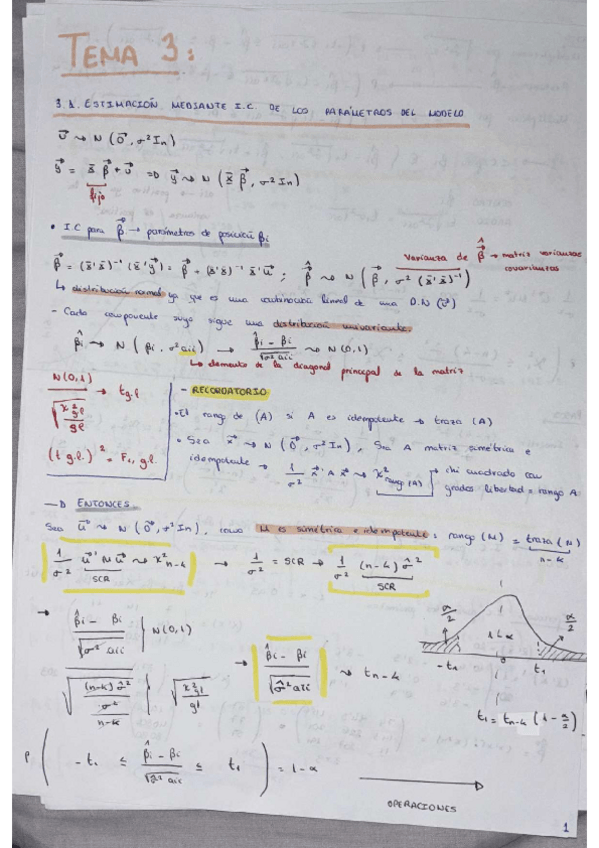 TEMA 3:
3.1. ESTIMACIÓN MEDIANTE I.C. DE LOS PARÁMETROS DEL MODELO
U⃗ ⇝ N (0⃗, σ² In)
y⃗ = X̄ β⃗ + U⃗ => y⃗ ⇝ N (X̄ β⃗, σ² In)
fijo
• I.C para β⃗ → parámetros de posición βi
Varianza de β̂⃗ → matriz varianzas covariantas
β̂⃗ = (X̄'X̄)⁻¹ (X̄'y⃗) = β⃗ + (X̄'X̄)⁻¹ X̄'u⃗ ; β̂⃗ ⇝ N (β⃗, σ² (X̄'X̄)⁻¹)
↳ distribución normal ya que es una combinación lineal de una D.N (U⃗)
- Cada componente suya sigue una distribución univariante.
β̂i ⇝ N (βi, σ² aii) → (β̂i - βi) / √(σ² aii) ⇝ N(0,1)
↳ elemento de la diagonal principal de la matriz
N(0,1) / √(χ²gl / gl) → t g.l
(t g.l.)² = F1, g.l.
- RECORDATORIO
• El rango de (A) si A es idempotente → traza (A)
• Sea U⃗ ⇝ N (0⃗, σ² In), Sea A matriz simétrica e
idempotente → 1/σ² U⃗' A U⃗ ⇝ χ² rango (A) → chi cuadrado con
grados libertad = rango A
→ ENTONCES
Sea U⃗ ⇝ N (0⃗, σ² In), como M es simétrica e idempotente: rango (M) = traza (M)
n-k
1/σ² U⃗' M U⃗ ⇝ χ² n-k → 1/σ² = SCR → 1/σ² (n-k) σ̂²
SCR
SCR
→ (β̂i - βi) / √(σ² aii) } N(0,1)
√( ((n-k) σ̂² / σ²) / (n-k) ) } √(χ²gl / gl)
→ (β̂i - βi) / √(σ̂² aii) ⇝ t n-k
α/2
1-α
α/2
-t1
0
t1
t1 = t n-k (1 - α/2)
P ( -t1 ≤ (β̂i - βi) / √(σ̂² aii) ≤ t1 ) = 1-α
OPERACIONES
1